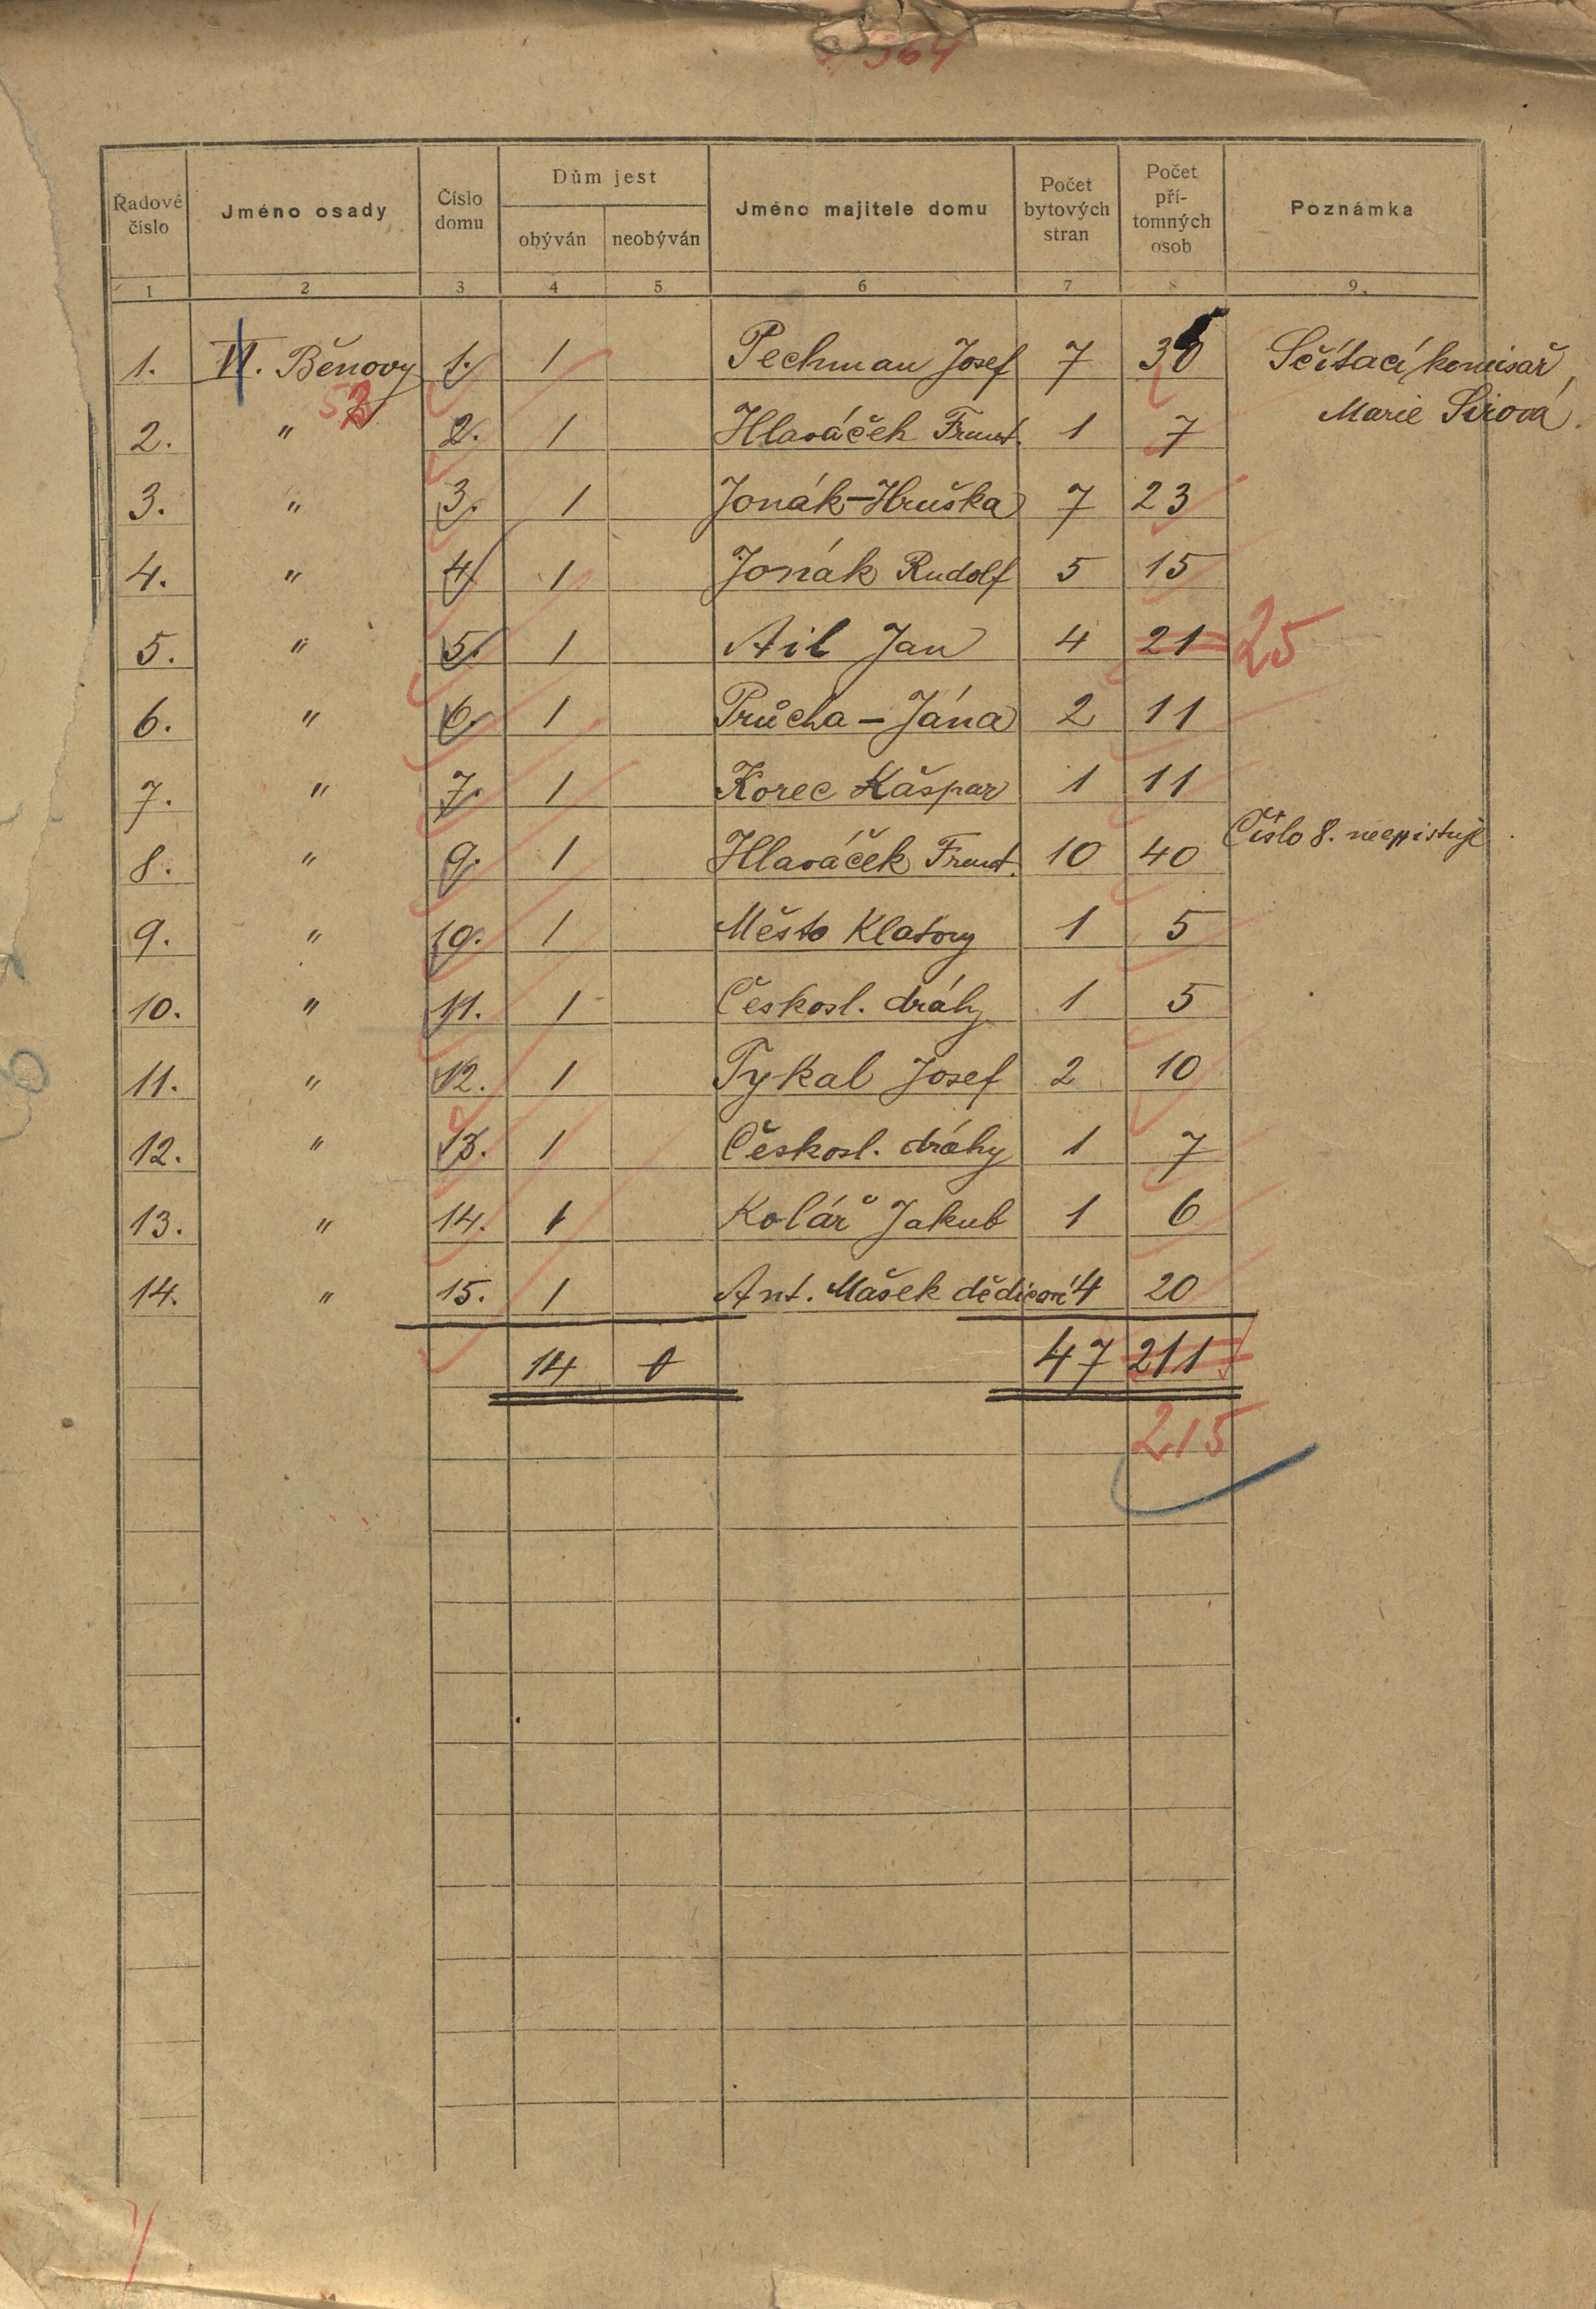 364
Řadové číslo | Jméno osady | Číslo domu | Dům jest | Jméno majitele domu | Počet bytových stran | Počet pří-tomných osob | Poznámka
obýván | neobýván
1 | 2 | 3 | 4 | 5 | 6 | 7 | 8 | 9.
1. | VI. Běnovy | 1. | 1 | Pechman Josef | 7 | 30 | Sčítací komisař
52
2. | " | 2. | 1 | Hlaváček Frant. | 1 | 7 | Marie Sirová.
3. | " | 3. | 1 | Jonák-Hruška | 7 | 23
4. | " | 4 | 1 | Jonák Rudolf | 5 | 15
5. | " | 5. | 1 | Ail Jan | 4 | 21 | 25
6. | " | 6. | 1 | Průcha - Jána | 2 | 11
7. | " | 7. | 1 | Korec Kašpar | 1 | 11
8. | " | 9. | 1 | Hlaváček Frant. | 10 | 40 | Číslo 8. neexistuje
9. | " | 10. | 1 | Město Klatovy | 1 | 5
10. | " | 11. | 1 | Českosl. dráhy | 1 | 5
11. | " | 12. | 1 | Tykal Josef | 2 | 10
12. | " | 13. | 1 | Českosl. dráhy | 1 | 7
13. | " | 14. | 1 | Kolář Jakub | 1 | 6
14. | " | 15. | 1 | Ant. Mašek dědicové | 4 | 20
14 | 0 | 47 | 211
215